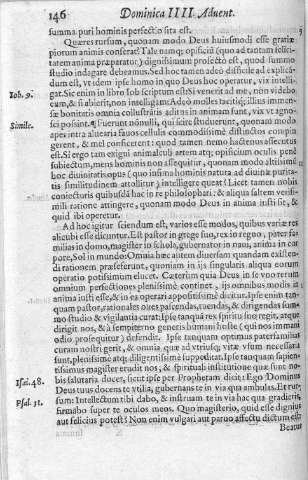 146 Dominica IIII. Aduent.
summa puri hominis perfectio sita est.
Quæres rursum, quonam modo Deus huiusmodi esse gratiæ
piorum animis conserat? Talenamq; opificiũ (quo ad tantam felici-
tatem anima præparatur) dignissimum profecto est, quod summo
studio indagare debeamus. Sed hoc tamen adeò difficile ad explicã-
dum est, vt idem ipse homo in quo Deus hoc operatur, vix intelli-
Iob. 9. gat. Sic enim in libro Iob scriptum est: Si venerit ad me, non videbo
eum, & si abierit, non intelligam. Adeò molles tacitiq; illius immen-
sæ bonitatis omnia collustrãtis aditus in animam sunt, vix vt agnos-
Simile. ci possint. Fiuerunt nõnulli, qui scire studuerunt, quonam modo
apes intra aluearia fauos cellulis commodissimè distinctos compin-
gerent, & mel conficerent: quod tamen nemo hactenus assecutus
est. Si ergo tam exigui animalculi artem atq; opificium oculis penè
subiectum, mens hominis non assequitur, quonam modo altissimũ
hoc diuinitatis opus (quo infima hominis natura ad diuinæ purita-
tis similitudinem attollitur) intelligere queat? Licet tamen nobis
coniecturis quibusdã hac in re philosophari: & aliqua saltem verisi-
mili ratione attingere, quonam modo Deus in anima iusti sit, &
quid ibi operetur.
Ad hoc igitur sciendum est, varios esse modos, quibus variæ res
alicubi esse dicuntur. Est pastor in grege suo, rex in regno, paterfa-
milias in domo, magister in schola, gubernator in naui, anima in cor
pore, Sol in mundo: Omnia hæc autem diuersam quandam existen-
di rationem præseferunt, quoniam in ijs singularis aliqua eorum
operatio potissimum elucet. Cæterùm quia Deus in se vno rerum
omnium perfectiones plenissimè continet, ijs omnibus modis in
anima iusti esse, & in ea operari appositissimè dicitur. Ipse enim tan-
quam pastor, rationales oues pascendas, tuendas, & dirigendas sum-
mo studio & vigilantia curat: Ipse tanquã rex spiritu suo regit, atque
dirigit nos, & à sempiterno generis humani hoste (qui nos immani
odio prosequitur) defendit. Ipse tanquam optimus paterfamilias
curam nostri gerit, & omnia, quæ ad vtriusq; vitæ vsum necessaria
sunt, plenissimè atq; diligentissimè suppeditat. Ipse tanquam sapien-
tissimus magister erudit nos, & spirituali institutione quæ sunt no-
Isai. 48. bis salutaria docet, sicut ipse per Prophetam dicit: Ego Dominus
Deus tuus docens te vtilia, gubernans te in via qua ambulas. Et rur-
Psal. 31. sum: Intellectum tibi dabo, & instruam te in via hac qua gradieris,
firmabo super te oculos meos. Quo magisterio, quid esse dignius
aut felicius potest? Non enim vulgari aut paruo affectu dictum est:
Beatus